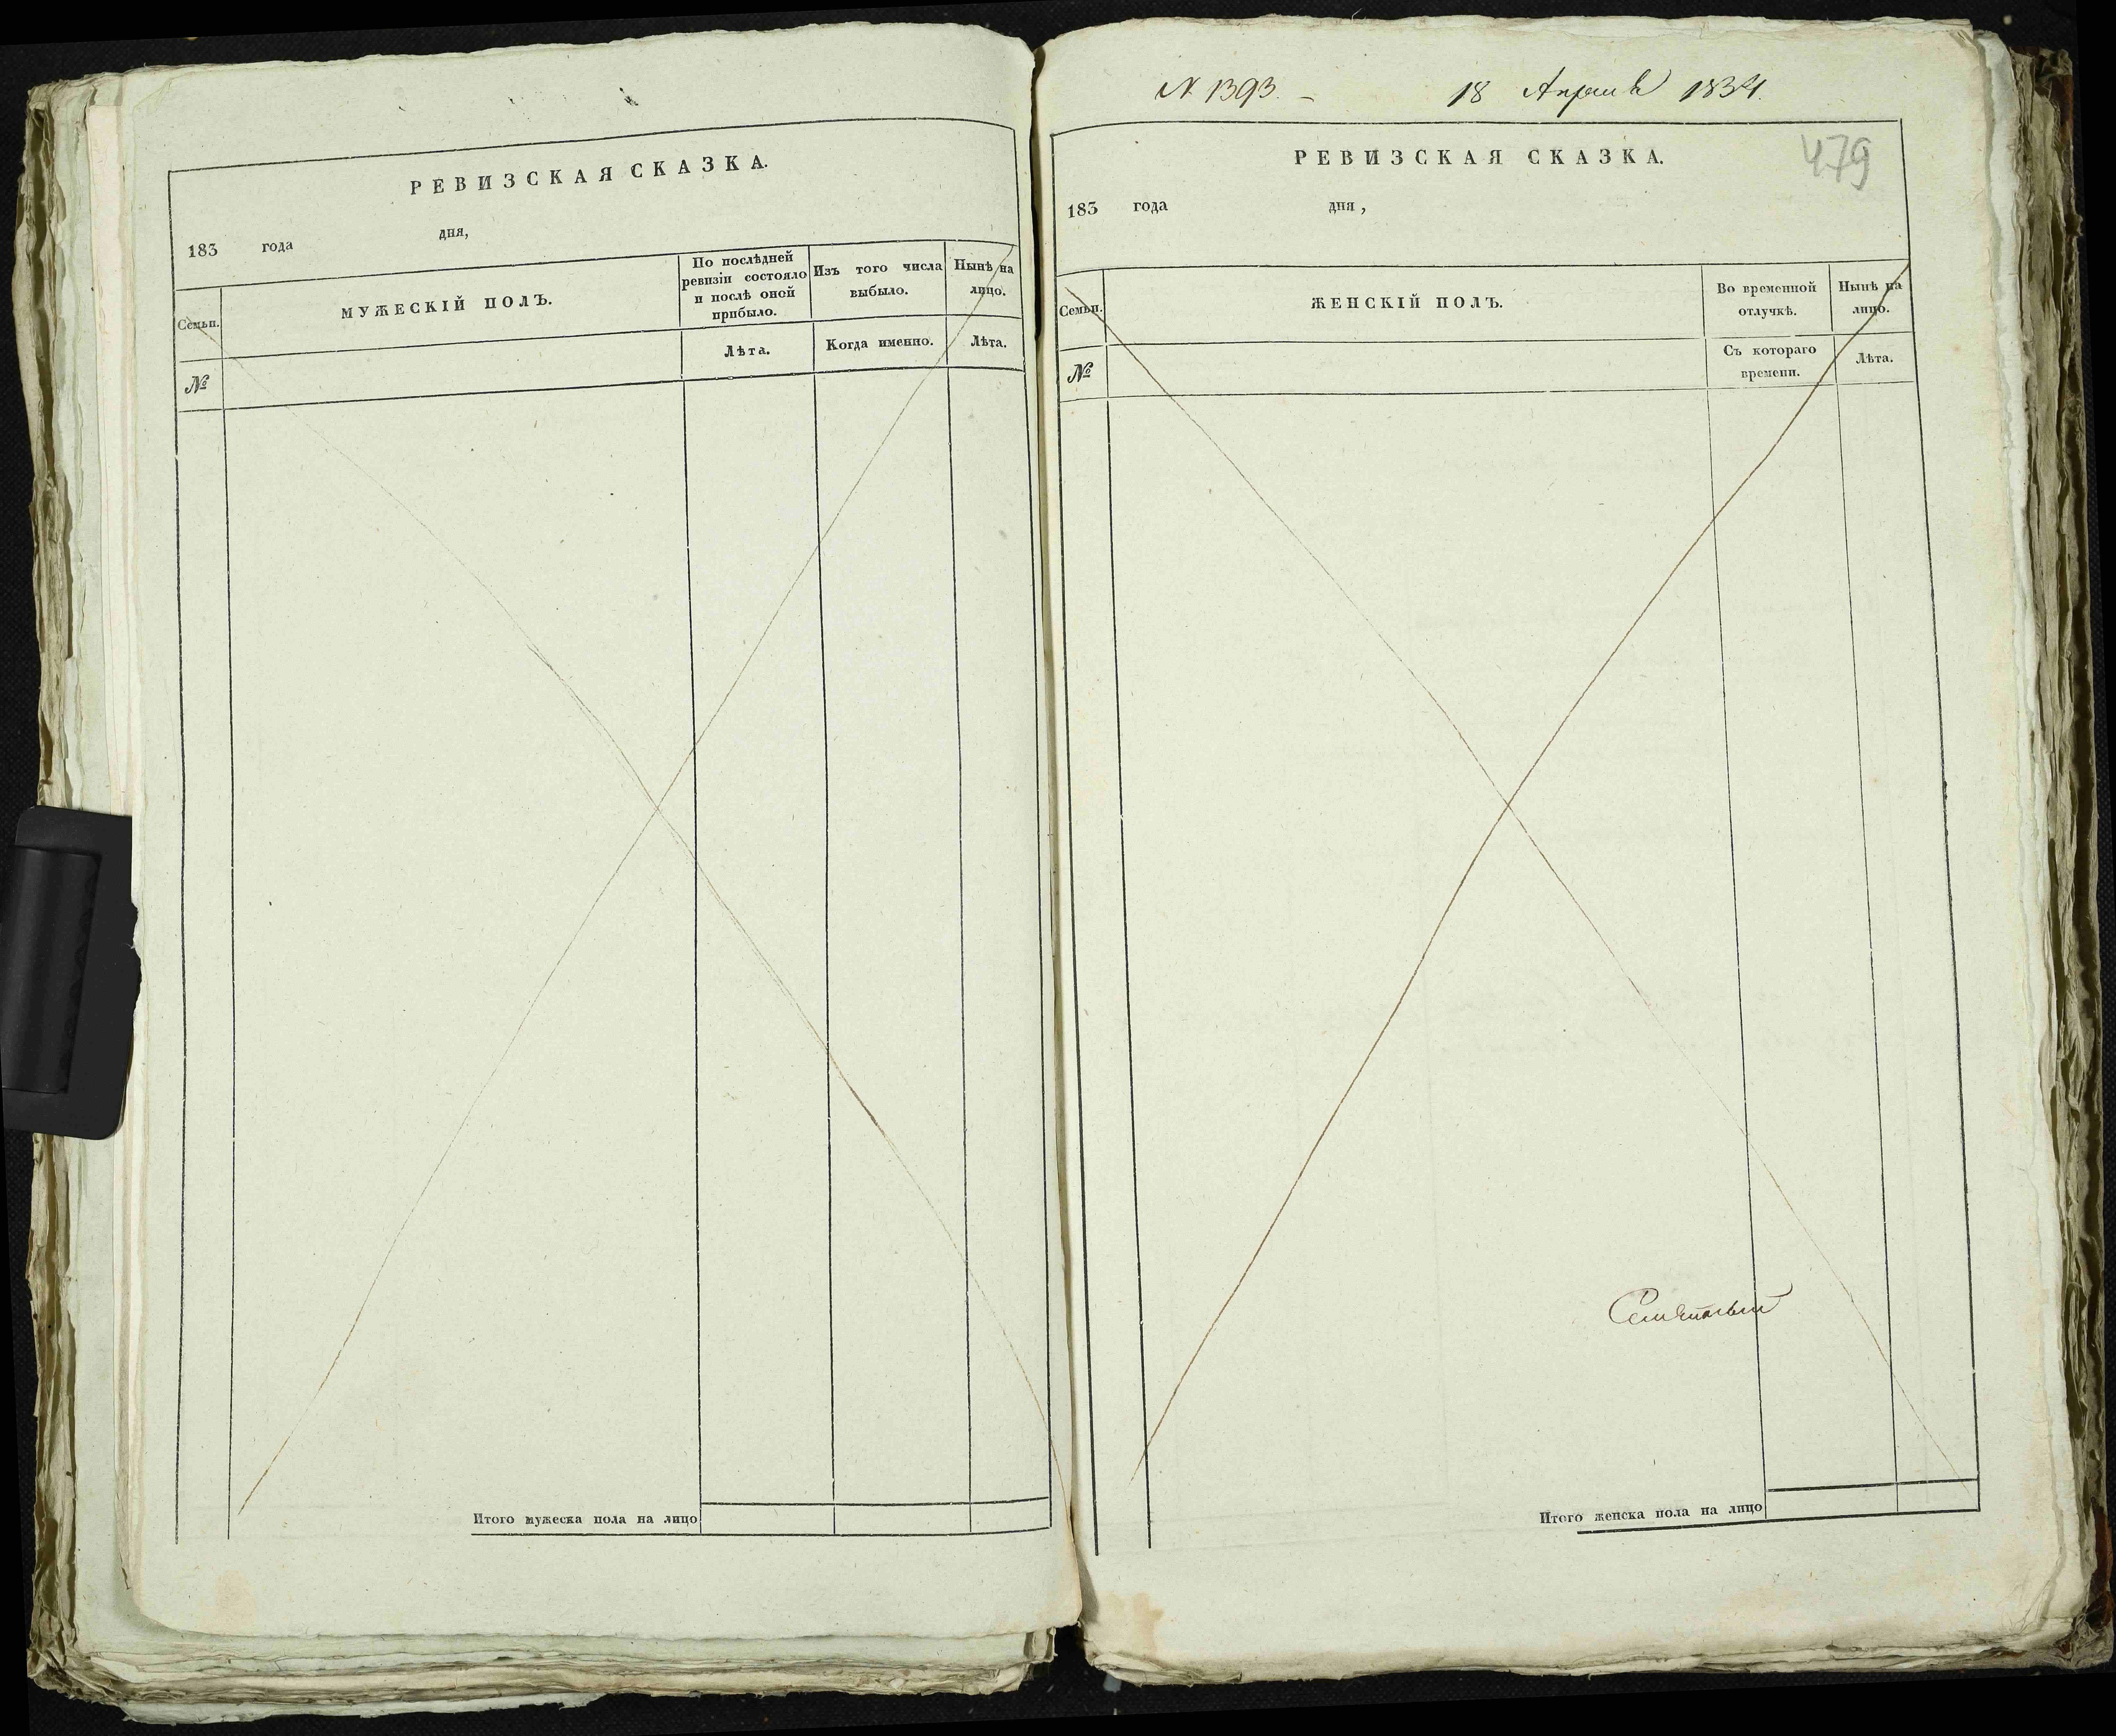 РЕВИЗСКАЯ СКАЗКА.
183 года дня,
Семьи.
МУЖЕСКІЙ ПОЛЪ.
По послѣдней
ревизіи состояло
и послѣ оной
прибыло.
Изъ того числа
выбыло.
Нынѣ на
лицо.
№
Лѣта.
Когда именно.
Лѣта.
Итого мужеска пола на лицо
N 1393. – 18 Апреля 1834.
479
РЕВИЗСКАЯ СКАЗКА.
183 года дня,
Семьи.
ЖЕНСКІЙ ПОЛЪ.
Во временной
отлучкѣ.
Нынѣ на
лицо.
№
Съ котораго
времени.
Лѣта.
Итого женска пола на лицо